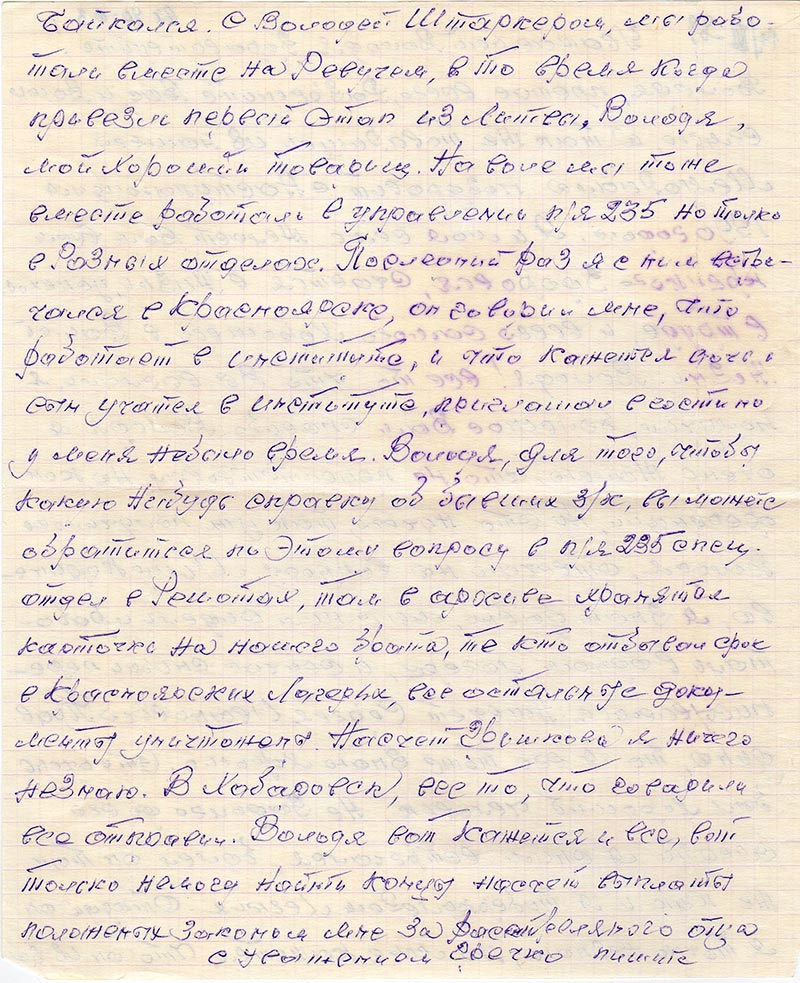 байкался. С Володей Штаркером, мы рабо-
тали вместе на Ревучем, в то время когда
привезли первый этап из Литвы, Володя,
мой хороший товарищ. На воле мы тоже
вместе работали в управлении п/я 235 но толко
в разных отделах. Последний раз я с ним встре-
чался в Красноярске, он говорил мне, что
работает в институте, и что кажется дочь и
сын учатся в институте, приглашал в гости но
у меня небыло время. Володя, для того, чтобы
какую нибудь справку об бывших з/к, вы можете
обратится по этому вопросу в п/я 235 спец.
отдел в Решотах, там в архиве хранятся
карточки на нашего брата, те кто отбывал срок
в Красноярских лагерях, все остальные доку-
менты уничтожены. Насчет я ничего
незнаю. В Хабаровск, все то, что говорили
все отправил. Володя вот кажется и все, вот
толко немогу найти концы насчет выплаты
положеных законом мне за расстреляного отца
с уважением пишите